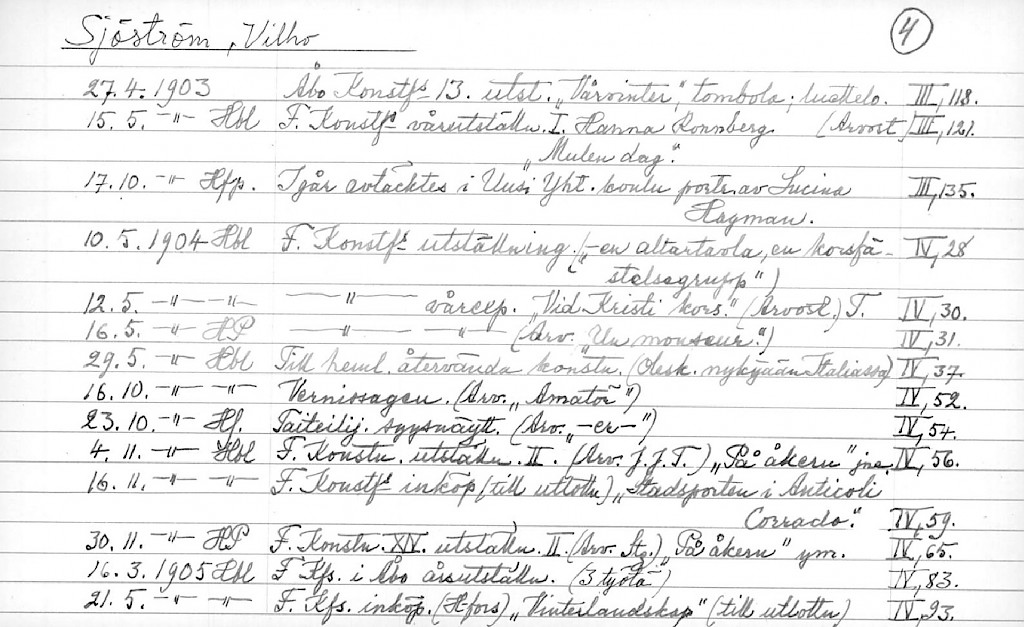 Sjöström, Vilho 4
27.4.1903 Åbo Konstfs 13. utst. „Vårvinter", tombola; luettelo. III, 118.
15.5. -"- Hbl F. Konstfs vårutställn. I. Hanna Rönnberg. (Arvost.) III, 121.
„Mulen dag".
17.10. -"- Hfp. Igår avtäcktes i Uusi Yht. koulu portr. av Lucina III, 135.
Hagman.
10.5.1904 Hbl F. Konstfs utställning („-en altartavla, en korsfä- IV, 28
stelsegrupp")
12.5. -"- -"- -"- vårexp. „Vid Kristi kors." (Arvost.) T. IV, 30.
16.5. -"- HP -"- -"- (Arv. „Un monsieur".) IV, 31.
29.5. -"- Hbl Till heml. återvända konstn. (Olesk. nykyään Italiassa) IV, 37.
16.10. -"- -"- Vernissagen. (Arv. „Amatör") IV, 52.
23.10. -"- Hl. Taiteilij. syysnäytt. (Arv. „-er-") IV, 54.
4.11. -"- Hbl F. Konstn. utställn. II. (Arv. J.J.T.) „På åkern" jne. IV, 56.
16.11. -"- -"- F. Konstfs inköp (till utlottn) „Stadsporten i Anticoli
Corrado". IV, 59.
30.11. -"- HP F. Konstn. XIV. utställn. II. (Arv. Stg.) „På åkern" ym. IV, 65.
16.3.1905 Hbl F Kfs. i Åbo årsutställn. (3 työtä) IV, 83.
21.5. -"- -"- F. Kfs. inköp. (H:fors) „Vinterlandskap" (till utlottn) IV, 93.